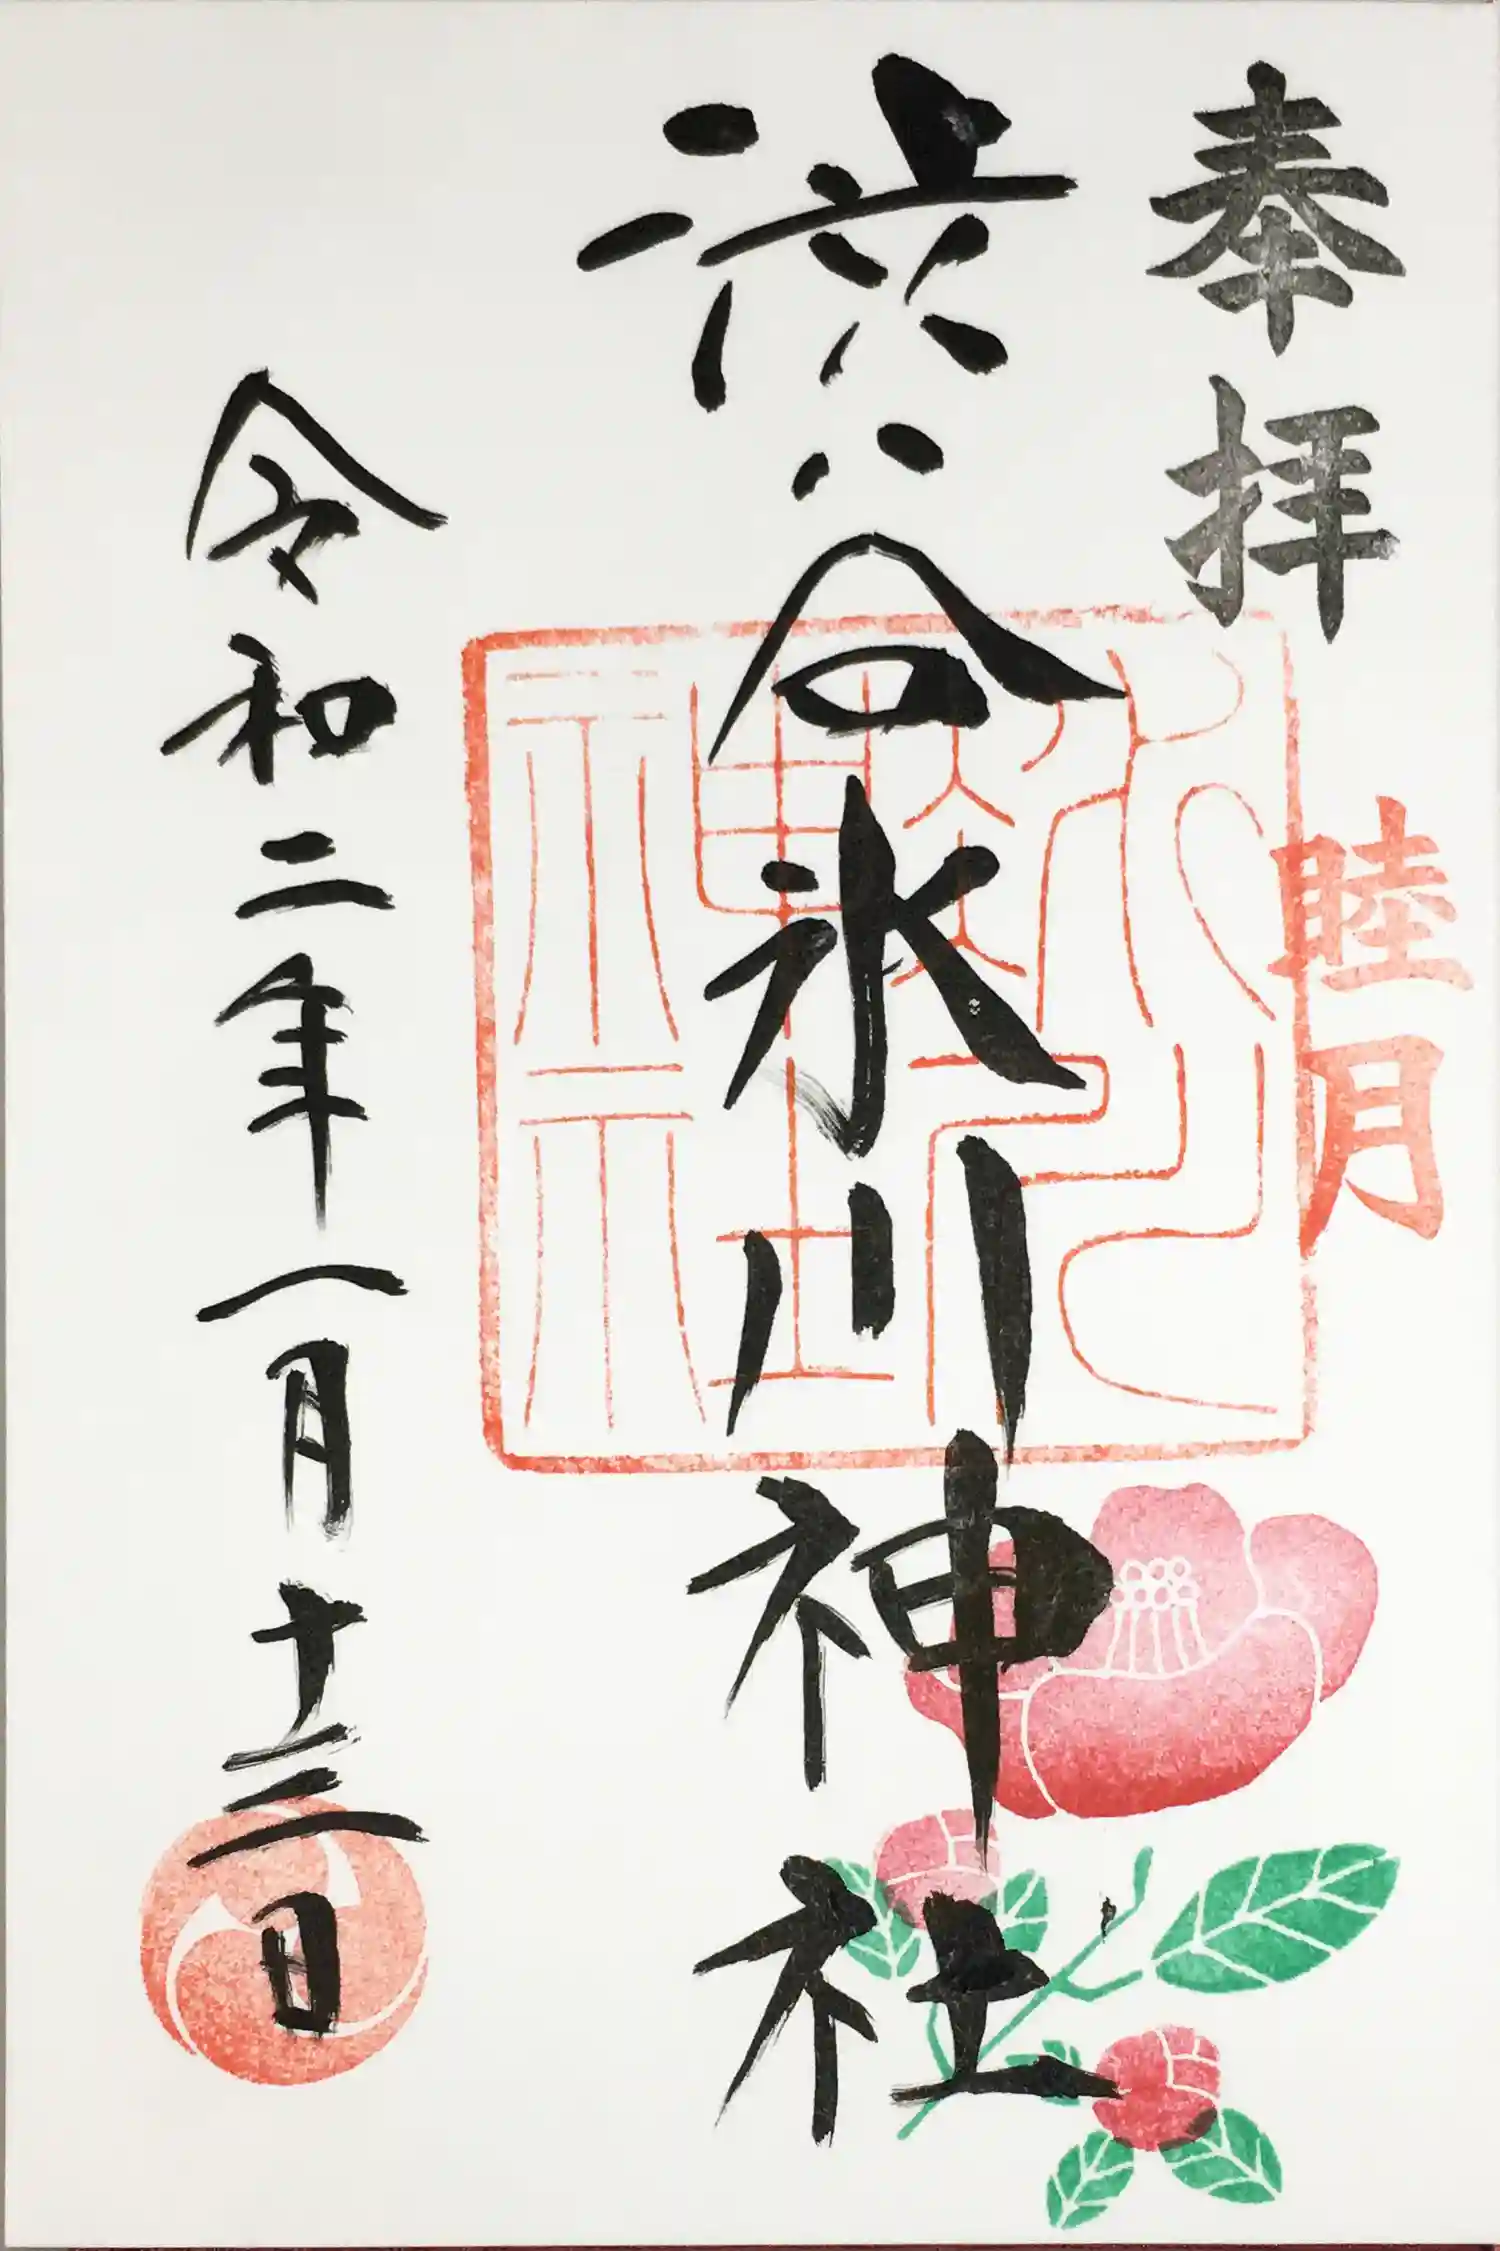 奉拝
睦月
渋谷氷川神社
令和二年一月十三日